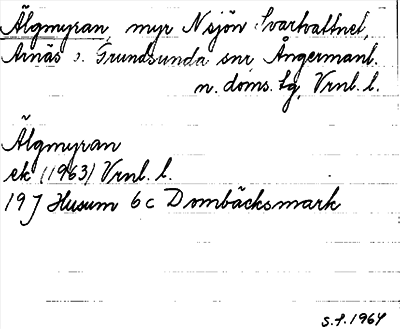 Älgmyran, myr N sjön Svartvattnet,
Arnäs o. Grundsunda snr, Ångermanl.
n. doms. lg, Vrnl. l.
Älgmyran
ek (1963) Vrnl. l.
19 J Husum 6 c Dombäcksmark
S.F. 1964